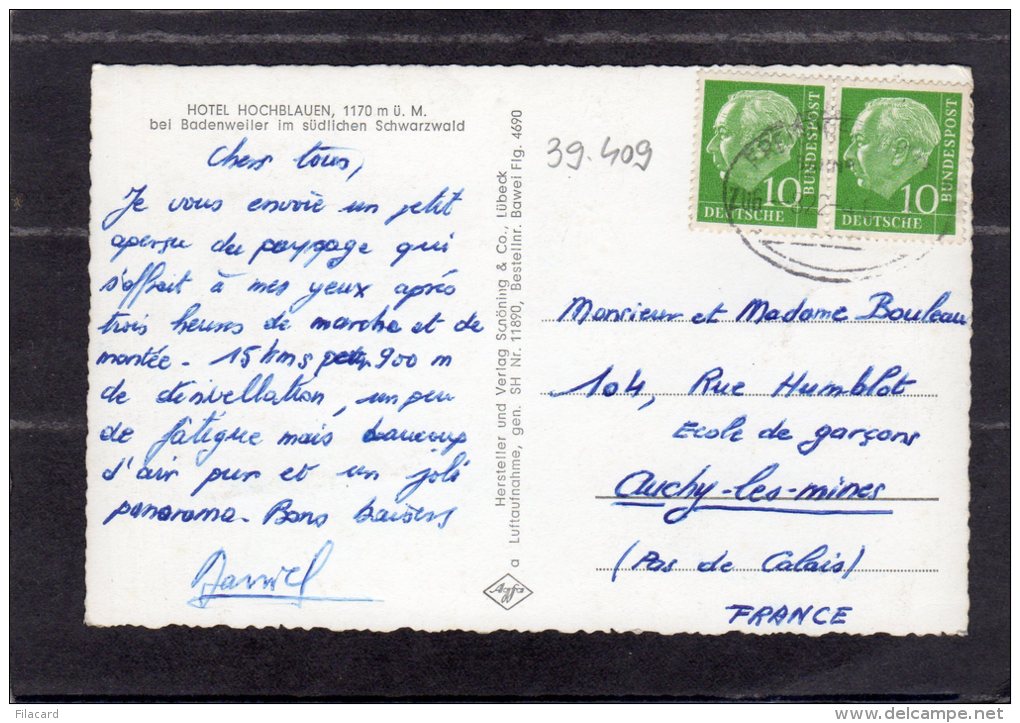 HOTEL HOCHBLAUEN, 1170 m ü. M.
bei Badenweiler im südlichen Schwarzwald
Chers tous,
Je vous envoie un petit
aperçu du paysage qui
s'offrait à mes yeux après
trois heures de marche et de
montée - 15 kms 900 m
de dénivellation, un peu
de fatigue mais beaucoup
d'air pur et un joli
panorama. Bons baisers
Daniel
Hersteller und Verlag Schöning & Co., Lübeck
a Luftaufnahme, gen. SH Nr. 11890, Bestellnr. Bawei Flg. 4690
Agfa
39.409
10
DEUTSCHE
BUNDESPOST
10
DEUTSCHE
BUNDESPOST
Zug
Monsieur et Madame Bouleau
104, Rue Humblot
Ecole de garçons
Auchy-les-mines
(Pas de Calais)
FRANCE
Filacard
delcampe.net